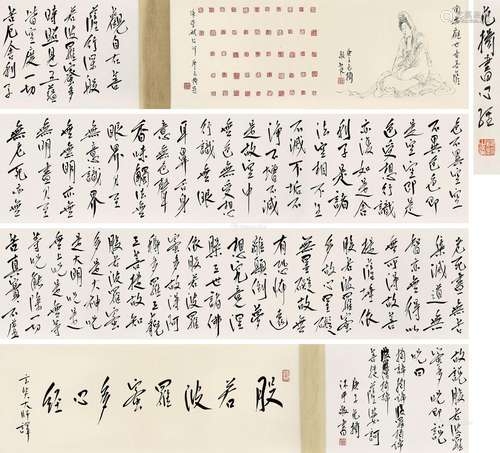 書心經
觀自在菩
薩行深般
若波羅蜜多
時照見五蘊
皆空度一切
苦厄舍利子
色不異空空
不異色色即
是空空即是
色受想行識
亦復如是舍
利子是諸
法空相不生
不滅不垢不
淨不增不減
是故空中
無色無受想
行識無眼
耳鼻舌身
意無色聲
香味觸法無
眼界乃至
無意識界
無無明亦無
無明盡乃至
無老死亦無
老死盡無苦
集滅道無
智亦無得以
無所得故菩
提薩埵依
般若波羅蜜
多故心無罣礙
無罣礙故無
有恐怖遠
離顛倒夢
想究竟涅
槃三世諸佛
依般若波羅
蜜多故得阿
耨多羅三藐
三菩提故知
般若波羅蜜
多是大神咒
是大明咒是
無上咒是無
等等咒能除一切
苦真實不虛
故說般若波羅
蜜多咒即說
咒曰
揭諦揭諦波羅揭諦
波羅僧揭諦
菩提薩婆訶
般若波羅蜜多心經